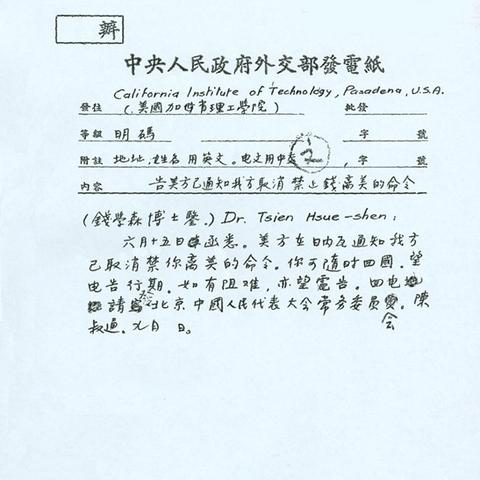 辦
中央人民政府外交部發電紙
California Institute of Technology, Pasadena, U.S.A.
發往 (美國加州理工學院) 批發
等級 明碼 字 號
附註 地址,姓名用英文。电文用中文 , 字 號
內容 告美方已通知我方取消禁止錢离美的命令
(錢學森博士鑒。) Dr. Tsien Hsue-shen:
六月十五日來函悉。美方在日內瓦通知我方
已取消禁你离美的命令。你可隨时回國。望
电告行期。如有阻难,亦望電告。回电
請寄北京中國人民代表大会常务委員會。陳
叔通。九月 日。